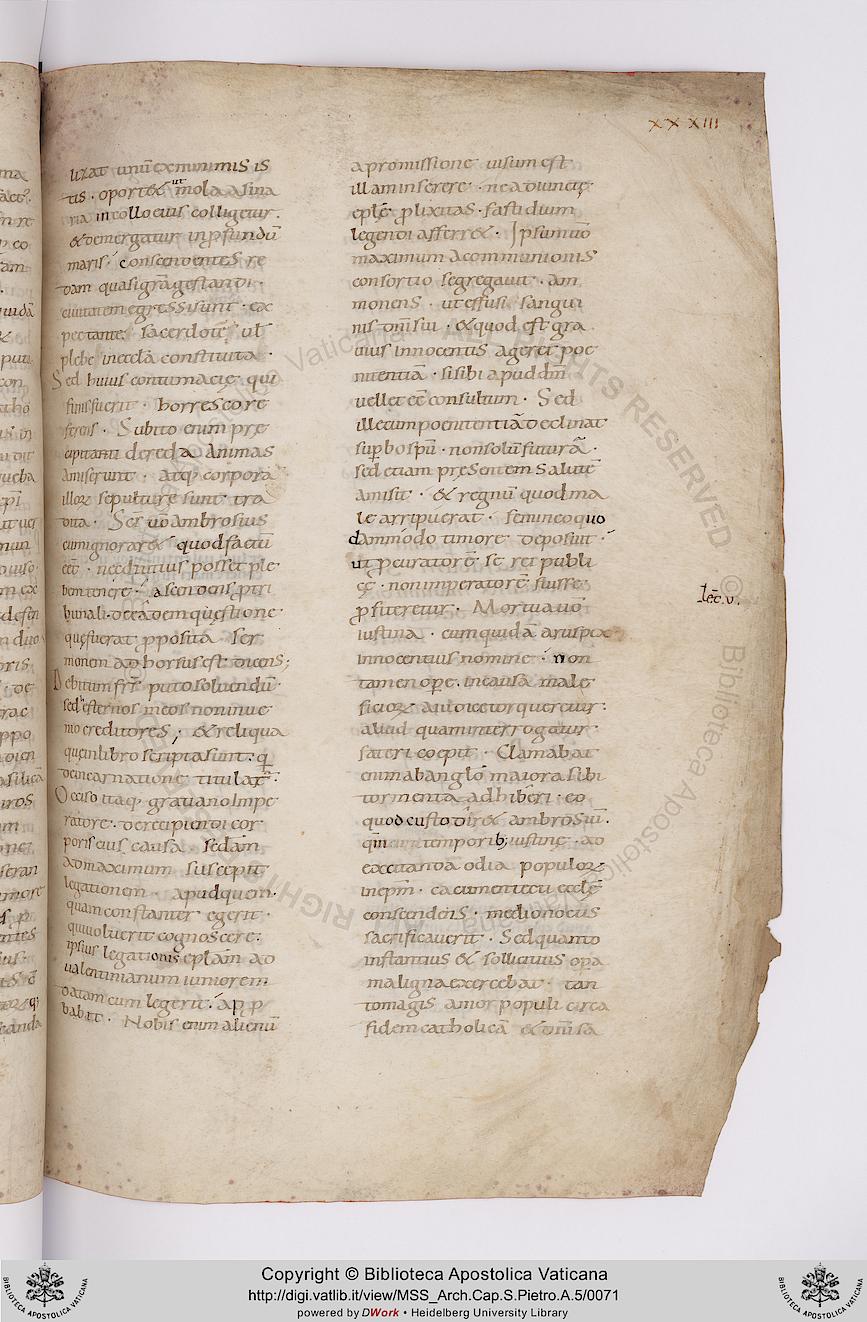 XXXIII
lizat unũ ex minimis is
tis · oportet ut mola asina
ria in collo eius colligetur ·
& demergatur in ꝓfundũ
maris · Conscendentes re
dam quasi gr̃a gestandi ·
civitatem egressi sunt · ex
pectante sacerdote ul̃
plebe in eccl̃a constituta ·
Sed huius contumacie qui
finis fuerit · horrescore
ferens · Subito enim pre
cipitati de reda animas
amiserunt · atq; corpora
illoꝝ sepulturę sunt tra
dita · Sc̃s ũo ambrosius
cum ignoraret quod factũ
eẽt · nec diutius posset ple
bem tenere · ascendens ꝓ tri
bunali · de eadem questione
quę fuerat ꝓposita ser
monem adhorsus est dicens;
Debitum fr̃s puto solvendũ ·
sed esternos meos non inve
nio creditores; & reliqua
que in libro scripta sunt · q̃
de incarnatione titulat ·
Occiso itaq; gratiano Impe
ratore · de recipiendi cor
poris eius causa · sedam
ad maximum suscepit
legationem · apud quem ·
quam constanter egerit ·
qui voluerit cognoscere ·
ipsius legationis ep̃lam ad
valentinianum iuniorem
datam cum legerit · aꝓ
babit · Nobis enim alienũ
a promissione visum est
illam inserere · ne adiunctę
ep̃lę ꝓlixitas · fastidium
legendi afferret · Ipsum ũo
maximum a communionis
consortio segregavit · am
monens · ut effusi sangui
nis dñi sui · & quod est gra
vius innocentis ageret poe
nitentiã · si sibi apud dm̃
vellet eẽ consultum · Sed
ille cum poenitentiã declinat
suꝑbo spũ · non solũ futurã ·
sed etiam presentem salutẽ
amisit · & regnũ quod ma
le arripuerat · femineo quo
dammodo timore deposuit ·
ut ꝓcuratorẽ se rei publi
cę · non imperatorẽ fuisse
ꝓfiteretur · Mortua ũo
iustina · cum quidã aruspex
innocentius nomine · non
tamen oꝑe · in causa male
ficioꝝ a iudice torqueretur ·
aliud quam interrogatur ·
fateri coepit · Clamabat
enim ab anglo maiora sibi
tormenta adhiberi · eo
quod custodiret ambrosiũ ·
qm̃ temporib; iustinę · ad
excitanda odia populoꝝ
in ep̃m · cacumen tecti eccl̃ę
conscendens · medio noctis
sacrificaverit · Sed quanto
instantius & sollicitius opera
maligna exercebat · tan
to magis amor populi circa
fidem catholicã & dñi sa
lec̃ · v ·
Copyright © Biblioteca Apostolica Vaticana
http://digi.vatlib.it/view/MSS_Arch.Cap.S.Pietro.A.5/0071
powered by DWork • Heidelberg University Library